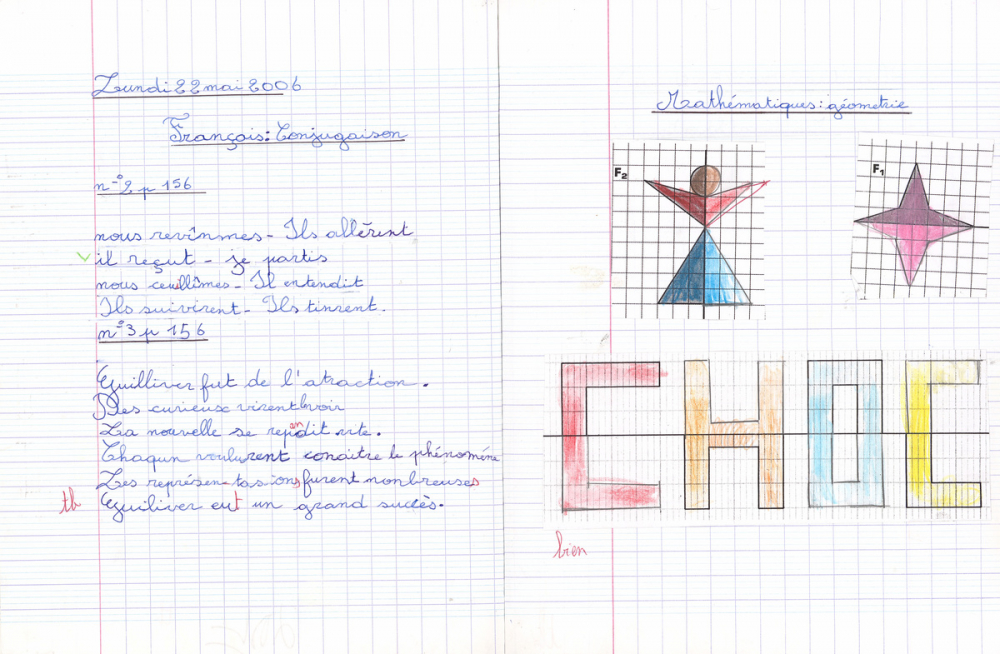 Lundi 22 mai 2006
Français: Conjugaison
n°2 p 156
nous revînmes - Ils allèrent
il reçut - je partis
nous ceuillîmes - Il entendit
Ils suivirent - Ils tinrent.
n°3 p 156
Guilliver fut de l'atraction.
Des curieux virent voir
La nouvelle se rependit vite.
Chaqun voulurent conaitre le phénomène
Les représen-tasions furent nonbreuses
th Guiliver eut un grand succès.
Mathématiques: géometrie
F2
F1
CHOC
bien